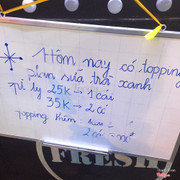 Hôm nay có topping
plan sữa trái xanh
gì ly 25K → 1 cái
35K → 2 cá
topping thêm
2 cá
FRESH